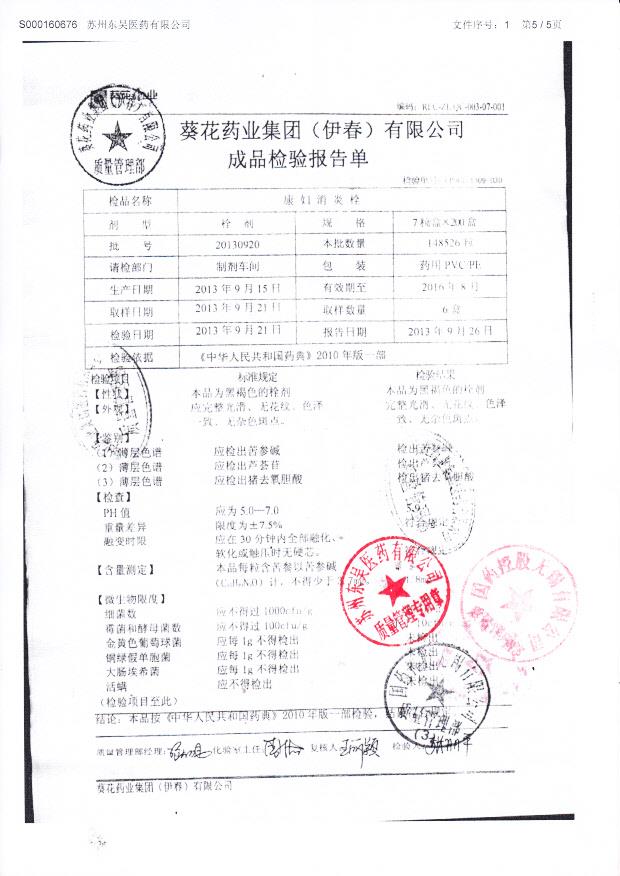 S000160676 苏州东吴医药有限公司 文件序号：1 第5/5页
质量管理部
葵花药业集团（伊春）有限公司
成品检验报告单
检品名称 康妇消炎栓
剂型 栓剂 规格 7粒/盒×200盒
批号 20130920 本批数量 148526粒
请检部门 制剂车间 包装 药用PVC/PE
生产日期 2013年9月15日 有效期至 2016年8月
取样日期 2013年9月21日 取样数量 6盒
检验日期 2013年9月21日 报告日期 2013年9月26日
检验依据 《中华人民共和国药典》2010年版一部
检验项目 标准规定 检验结果
【性状】 本品为黑褐色的栓剂 本品为黑褐色的栓剂
【外观】 应完整光滑、无花纹、色泽 完整光滑、无花纹、色泽
一致、无杂色斑点。 一致、无杂色斑点。
【鉴别】
（1）薄层色谱 应检出苦参碱 检出苦参碱
（2）薄层色谱 应检出芦荟苷 检出芦荟苷
（3）薄层色谱 应检出猪去氧胆酸 检出猪去氧胆酸
【检查】
PH值 应为5.0—7.0
重量差异 限度为±7.5% 符合规定
融变时限 应在30分钟内全部融化、
软化或触压时无硬芯。
【含量测定】 本品每粒含苦参以苦参碱
计，不得少于
【微生物限度】
细菌数 应不得过1000cfu/g
霉菌和酵母菌数 应不得过100cfu/g
金黄色葡萄球菌 应每1g不得检出 未检出
铜绿假单胞菌 应每1g不得检出 未检出
大肠埃希菌 应每1g不得检出
活螨 应不得检出
(检验项目至此)
结论：本品按《中华人民共和国药典》2010年版一部检验，
质量管理部经理： 化验室主任： 复核人： 检验人：
葵花药业集团（伊春）有限公司
苏州东吴医药有限公司
质量管理专用章
质量管理部
(3)